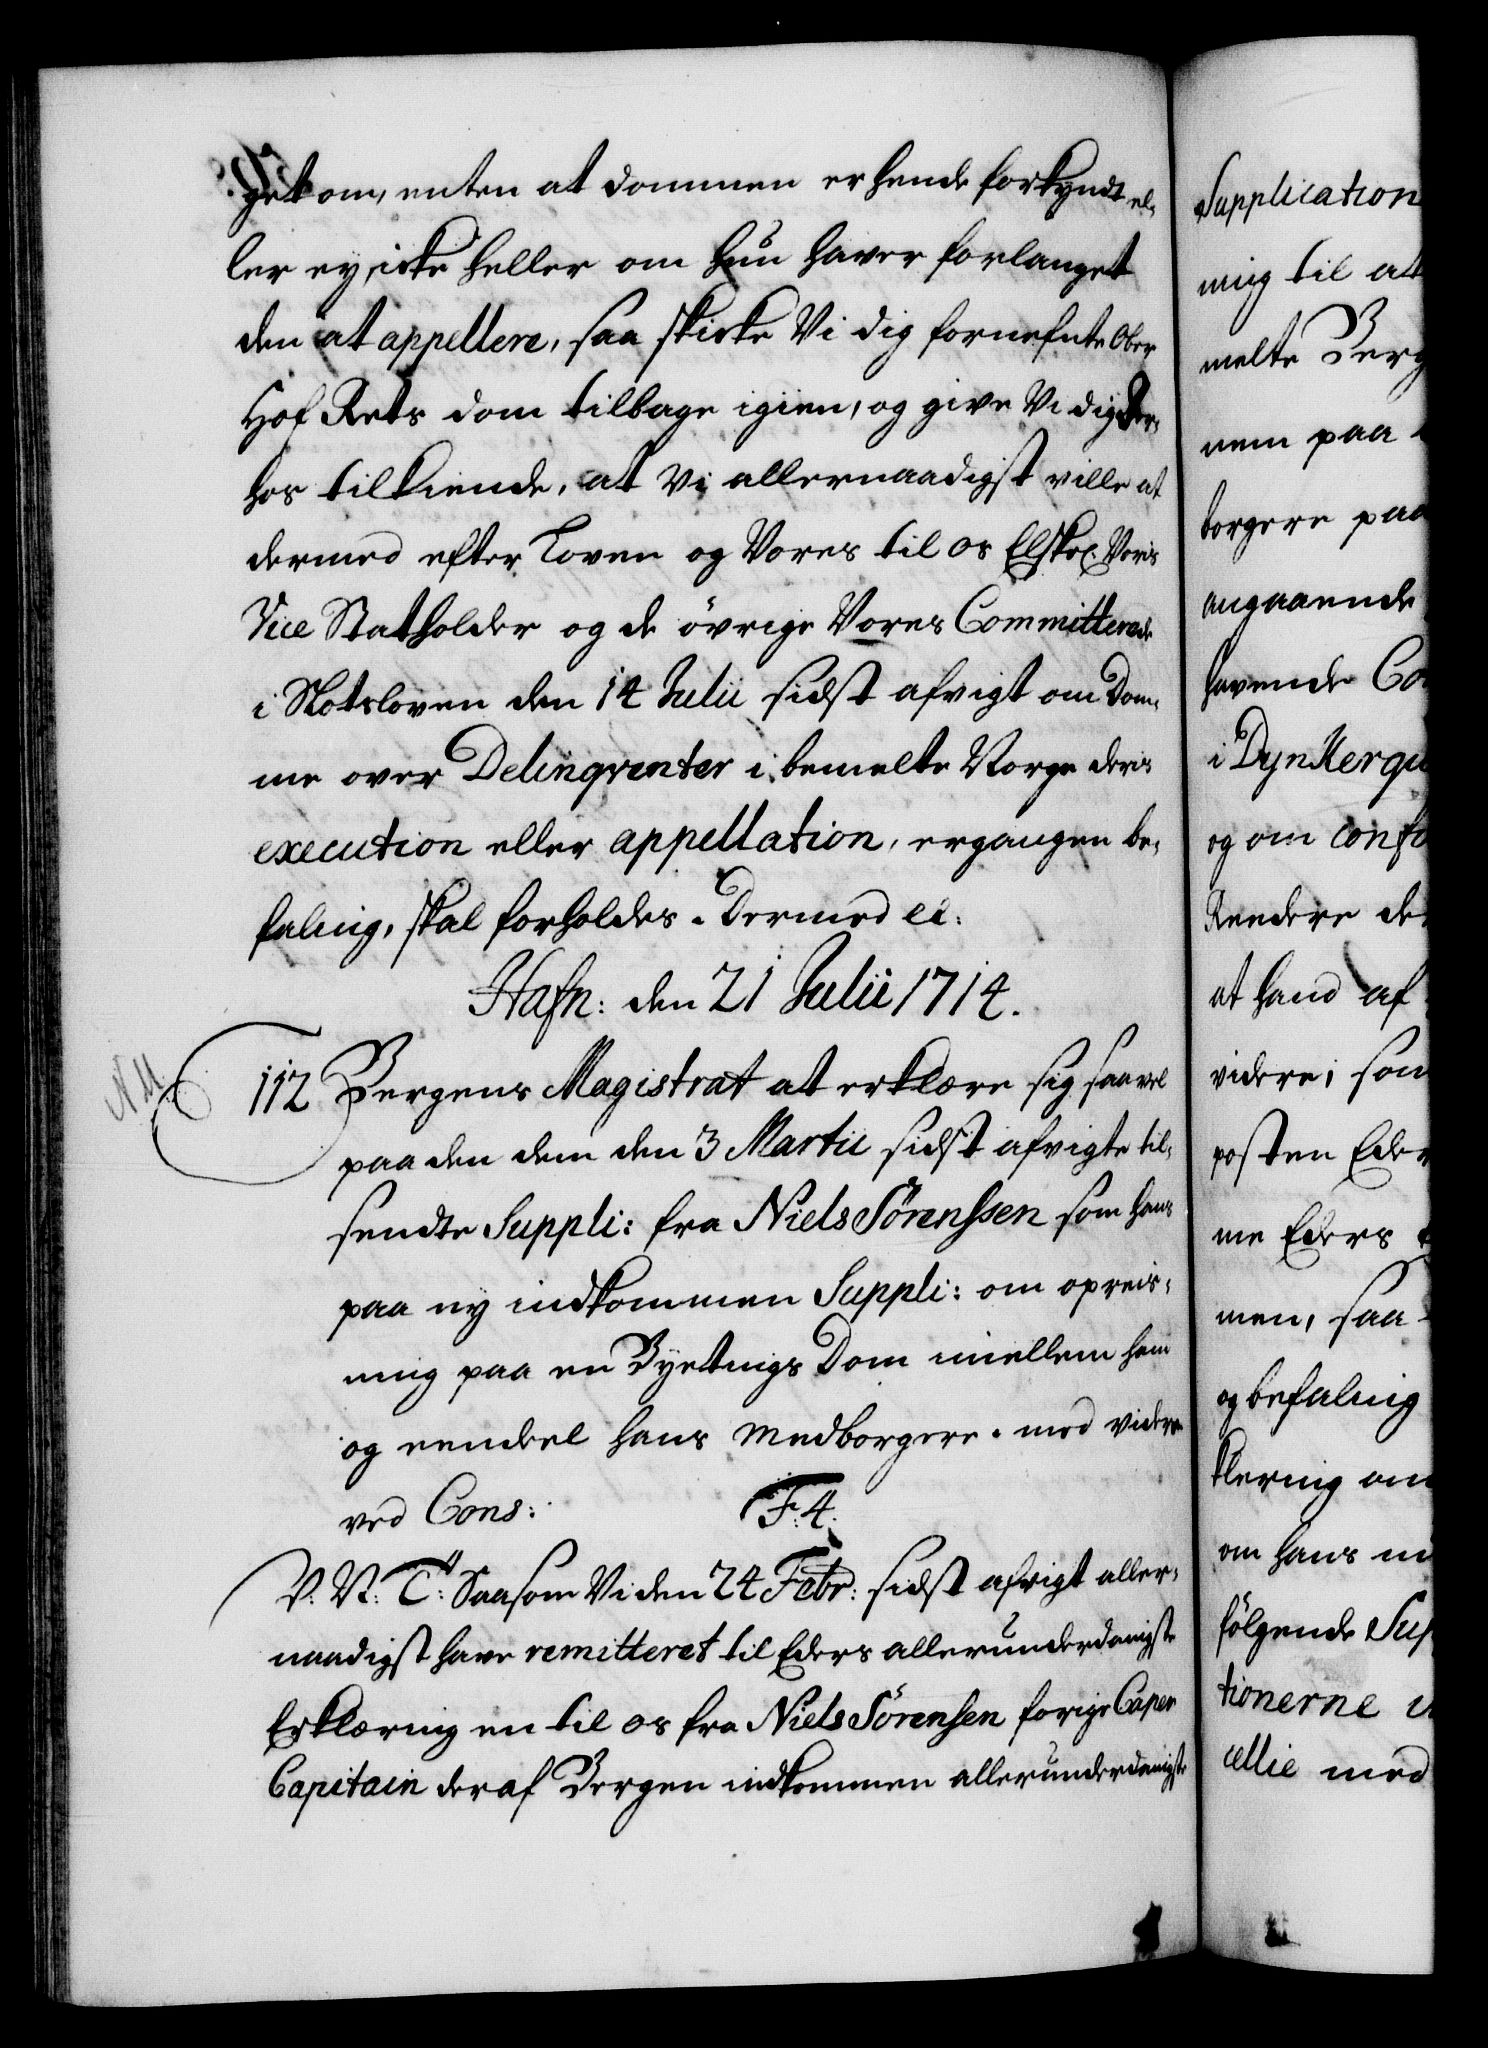 get om, enten at dommen er hende forkyndt el,
ler ey, icke heller om hun haver forlanget
den at appellere, saa skicke Vi dig fornefnte Ober
Hof Rets dom tilbage igien, og give Vi dig Der,
hos tilkiende, at Vi allernaadigst ville at
dermed efter Loven og Vores til os Elskel. Voris
Vice Statholder og de övrige Vores Committerede
i Slotsloven den 14 Julii sidst afvigt om Dom,
me over Delinqventer i bemelte Norge deris
execution eller appellation, ergangen be,
faling, skal forholdes. Dermed etc:
Hafn: den 21 Julii 1714.
NM
112 Bergens Magistrat at erklære sig saavel
paa den dem den 3 Martii sidst afvigte til,
sendte Suppli: fra Niels Sörenssen som hans
paa ny indkommen Suppli: om opreis,
ning paa en Byetings Dom imellem ham
og eendeel hans Medborgere. med videre
ved Cons: F: 4.
V. N. C: Saasom Vi den 24 Febr: sidst afvigt aller,
naadigst have remitteret til Eders allerunderdanigste
Erklæring en til os fra Niels Sörensen forige Caper
Capitain der af Bergen indkommen allerunderdanigste
Supplication
ning til at
melte Berg
nem paa
borgere paa
angaaende
havende Co
i Dynkerqu
og om conf
Reedere de
at hand af
videre, som
posten Eder
me Eders
men, saa
og befaling
klering om
om hans
fölgende Sup
tionerne
cellie med